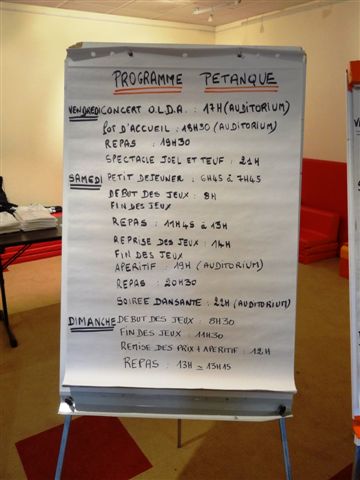 PROGRAMME PETANQUE
VENDREDI CONCERT O.L.D.A. : 17H (AUDITORIUM)
POT D'ACCUEIL : 18H30 (AUDITORIUM)
REPAS : 19H30
SPECTACLE JOEL ET TEUF : 21H
SAMEDI PETIT DEJEUNER : 6H45 à 7H45
DEBUT DES JEUX : 8H
FIN DES JEUX
REPAS : 11H45 à 13H
REPRISE DES JEUX : 14H
FIN DES JEUX
APERITIF : 19H (AUDITORIUM)
REPAS : 20H30
SOIREE DANSANTE : 22H (AUDITORIUM)
DIMANCHE DEBUT DES JEUX : 8H30
FIN DES JEUX : 11H30
REMISE DES PRIX + APERITIF : 12H
REPAS : 13H à 13H15